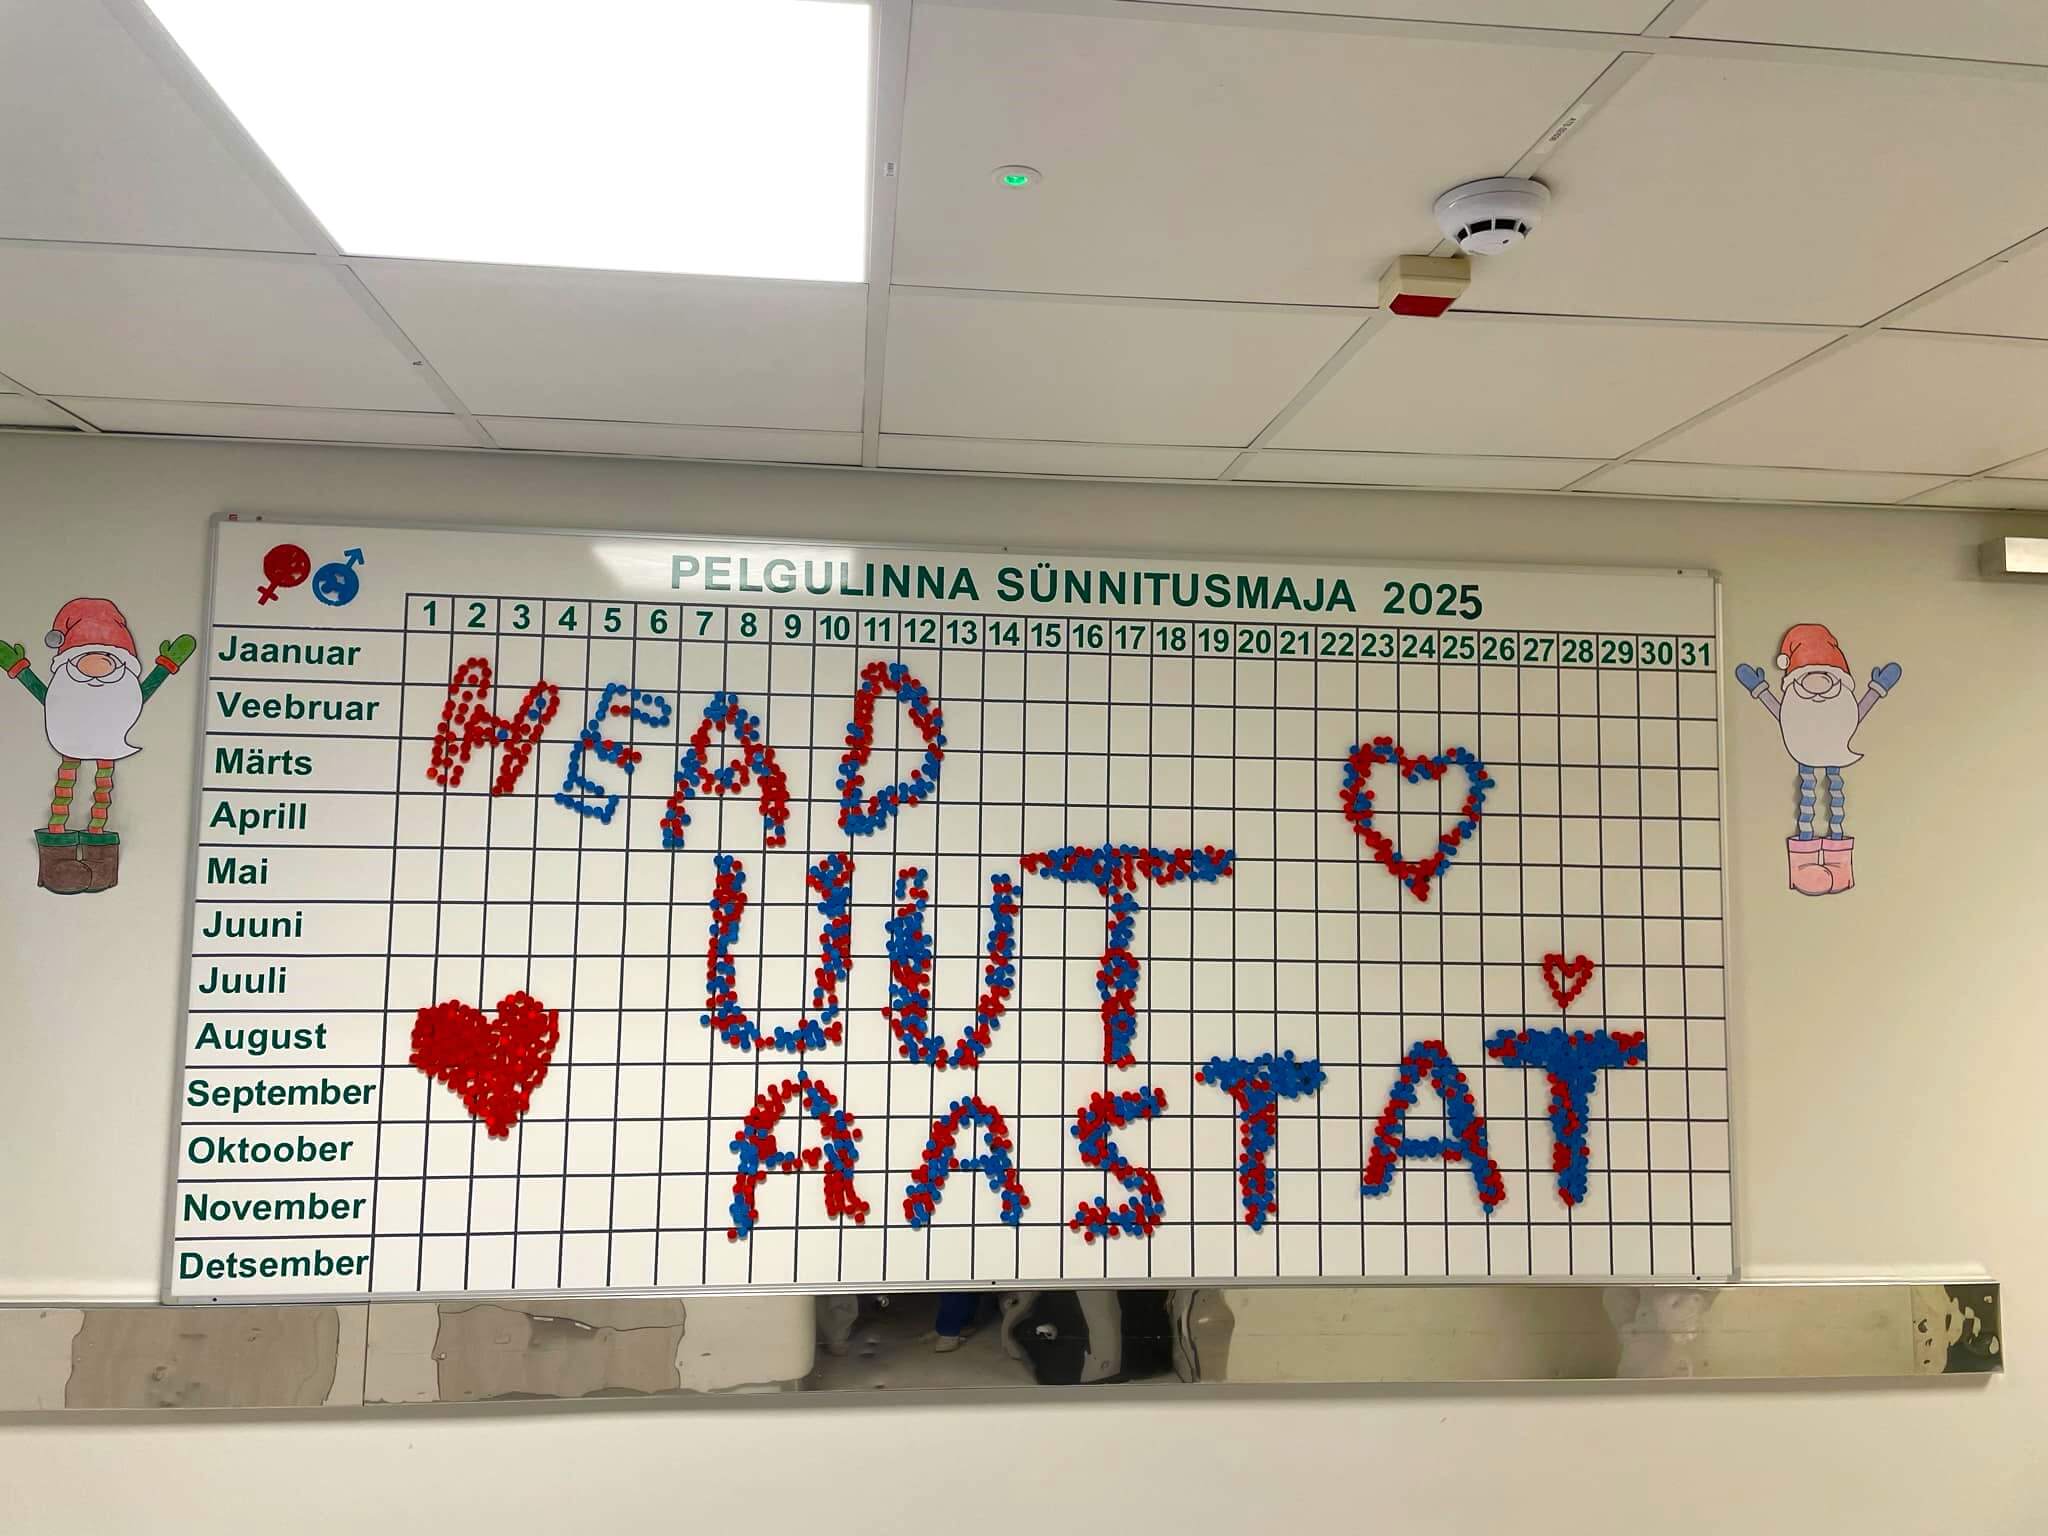 PELGULINNA SÜNNITUSMAJA 2025
1 2 3 4 5 6 7 8 9 10 11 12 13 14 15 16 17 18 19 20 21 22 23 24 25 26 27 28 29 30 31
Jaanuar
Veebruar
Märts
Aprill
Mai
Juuni
Juuli
August
September
Oktoober
November
Detsember
HEAD
UUT
AASTAT